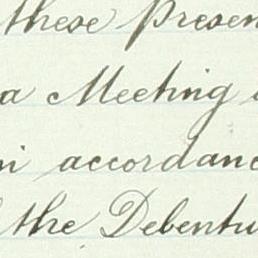 these Presen
a Meeting
in accordanc
the Debentu